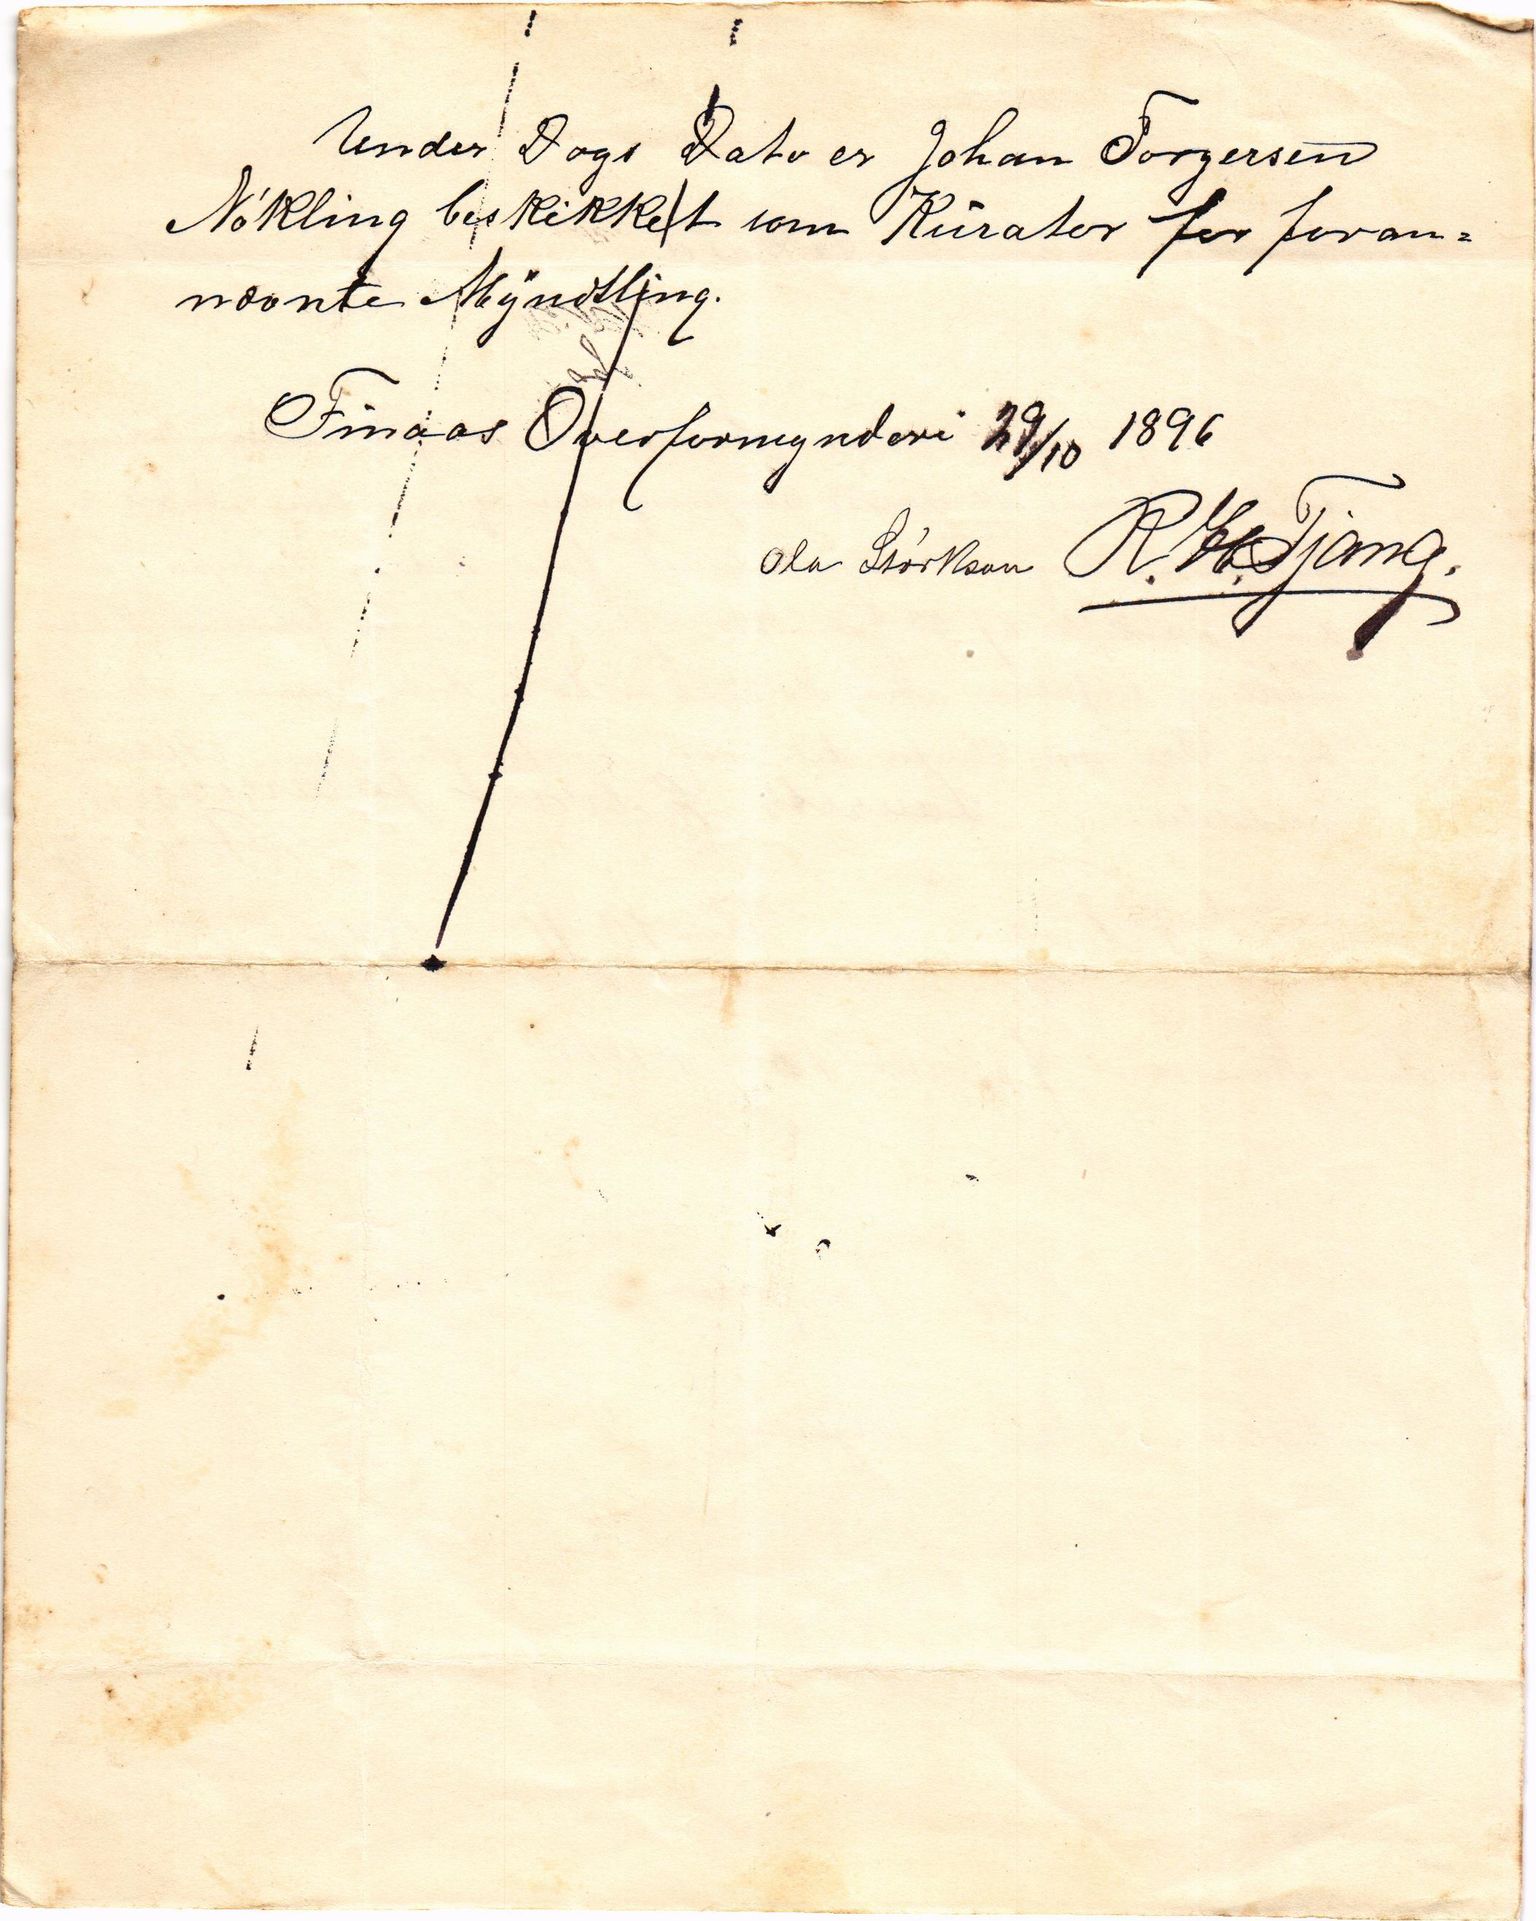 Under Dags Dato er Johan Torgersen
Nökling beskikket som Kurator for foran=
nævnte Myndtling.
Finaas Overformynderi 29/10 1896
Ola Störkson R. H. Tjang.